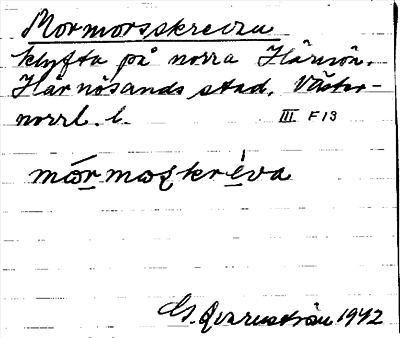 Mormorsskrevan
klyfta på norra Härnön.
Härnösands stad. Väster-
norrl. l.
III F 13
mórmorskréva
G. Qvarnström 1942